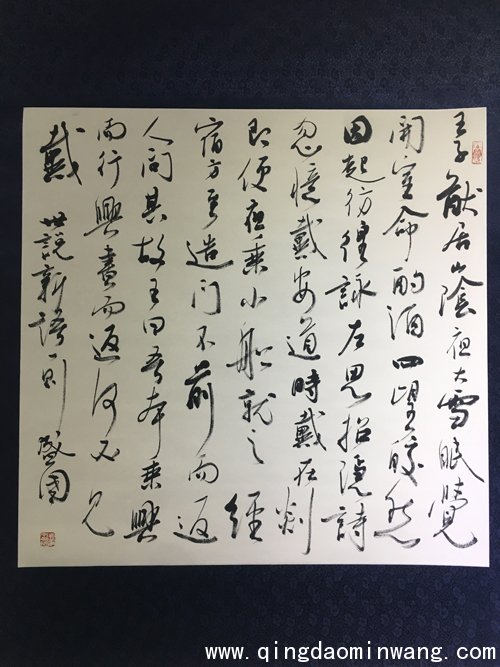 王子猷居山陰夜大雪眠覺
開室命酌酒四望皎然
因起彷徨詠左思招隱詩
忽憶戴安道時戴在剡
即便夜乘小船就之經
宿方至造門不前而返
人問其故王曰吾本乘興
而行興盡而返何必見
戴 世說新語一則 盛國
www.qingdaominwang.com